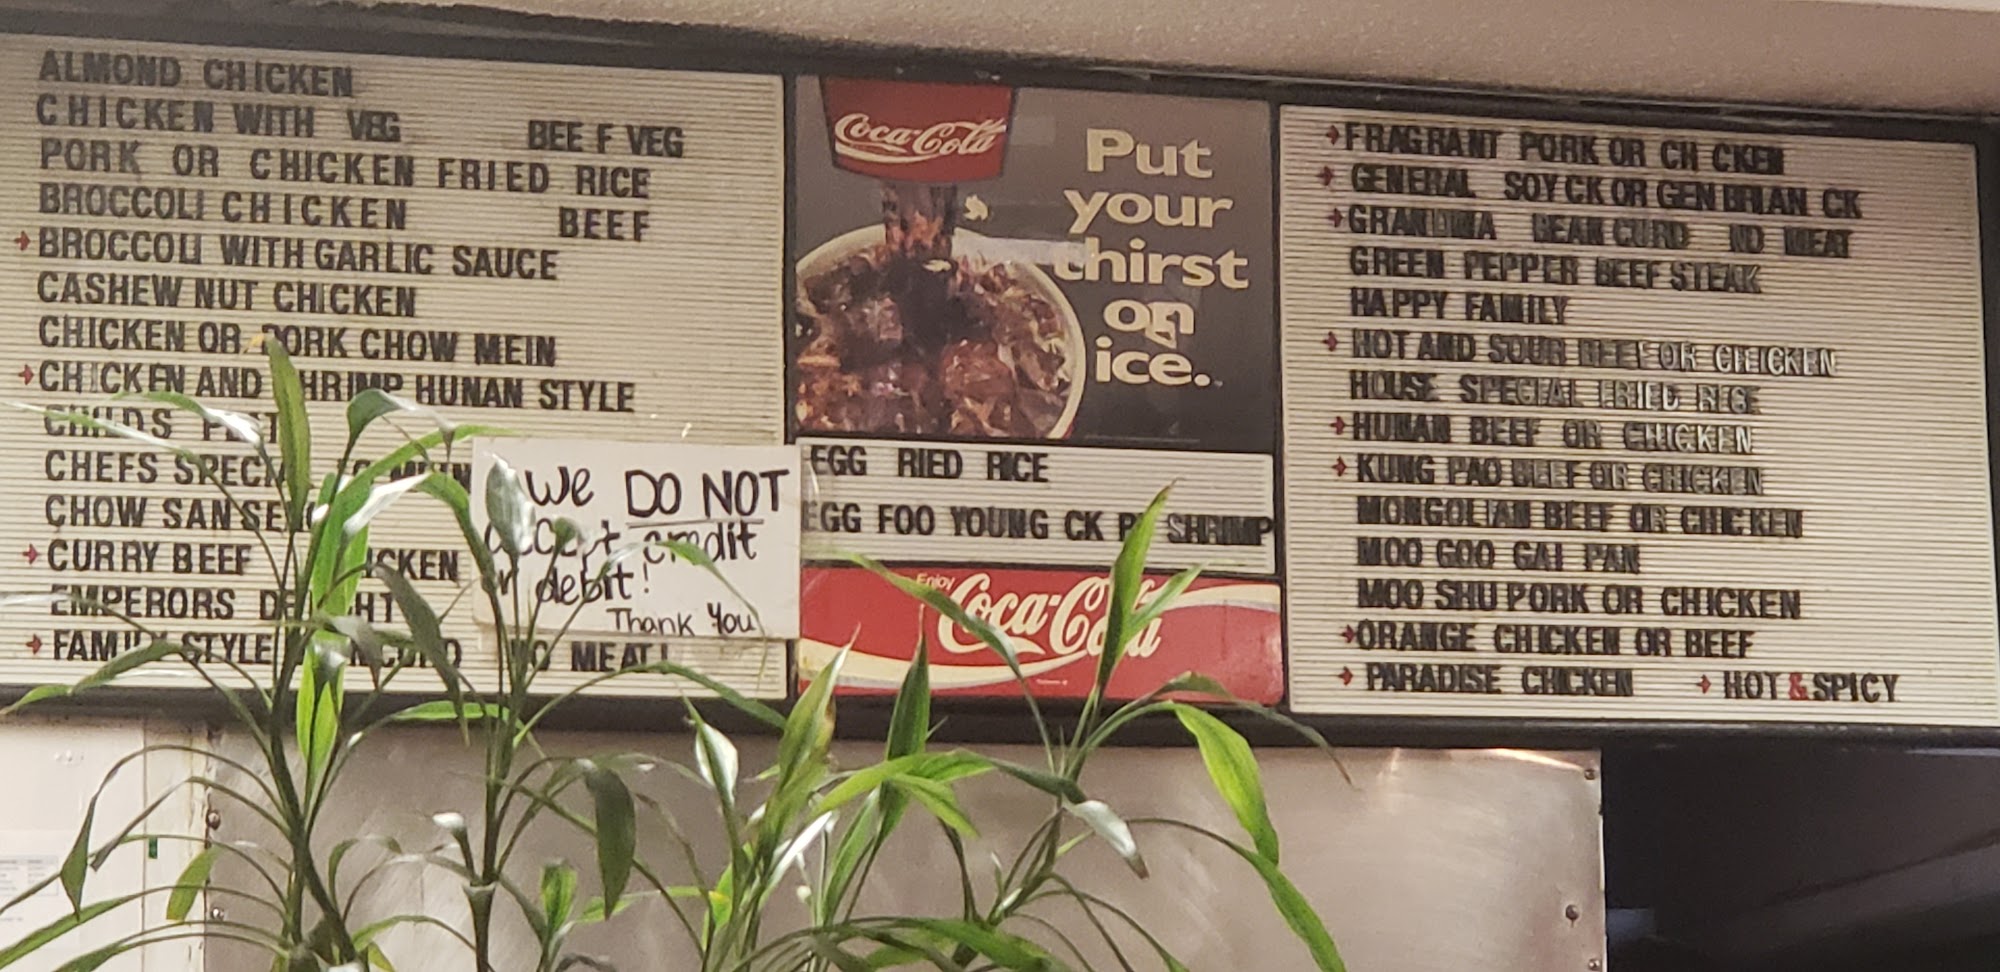 ALMOND CHICKEN
CHICKEN WITH VEG BEE F VEG
PORK OR CHICKEN FRIED RICE
BROCCOLI CHICKEN BEEF
BROCCOLI WITH GARLIC SAUCE
CASHEW NUT CHICKEN
CHICKEN OR PORK CHOW MEIN
CHICKEN AND SHRIMP HUNAN STYLE
CHILDS
CHEFS
CHOW SAN
CURRY BEEF
EMPERORS
FAMILY STYLE NO MEAT!
We DO NOT
accept credit
or debit!
Thank You
Coca-Cola
Put
your
thirst
on
ice.
EGG RIED RICE
EGG FOO YOUNG CK SHRIMP
Enjoy
Coca-Cola
FRAGRANT PORK OR CH CKEN
GENERAL SOY CK OR GEN BRIAN CK
GRANDMA BEAN CURD NO MEAT
GREEN PEPPER BEEF STEAK
HAPPY FAMILY
HOT AND SOUR BEEF OR CHICKEN
HOUSE SPECIAL FRIED RICE
HUNAN BEEF OR CHICKEN
KUNG PAO BEEF OR CHICKEN
MONGOLIAN BEEF OR CHICKEN
MOO GOO GAI PAN
MOO SHU PORK OR CHICKEN
ORANGE CHICKEN OR BEEF
PARADISE CHICKEN HOT & SPICY